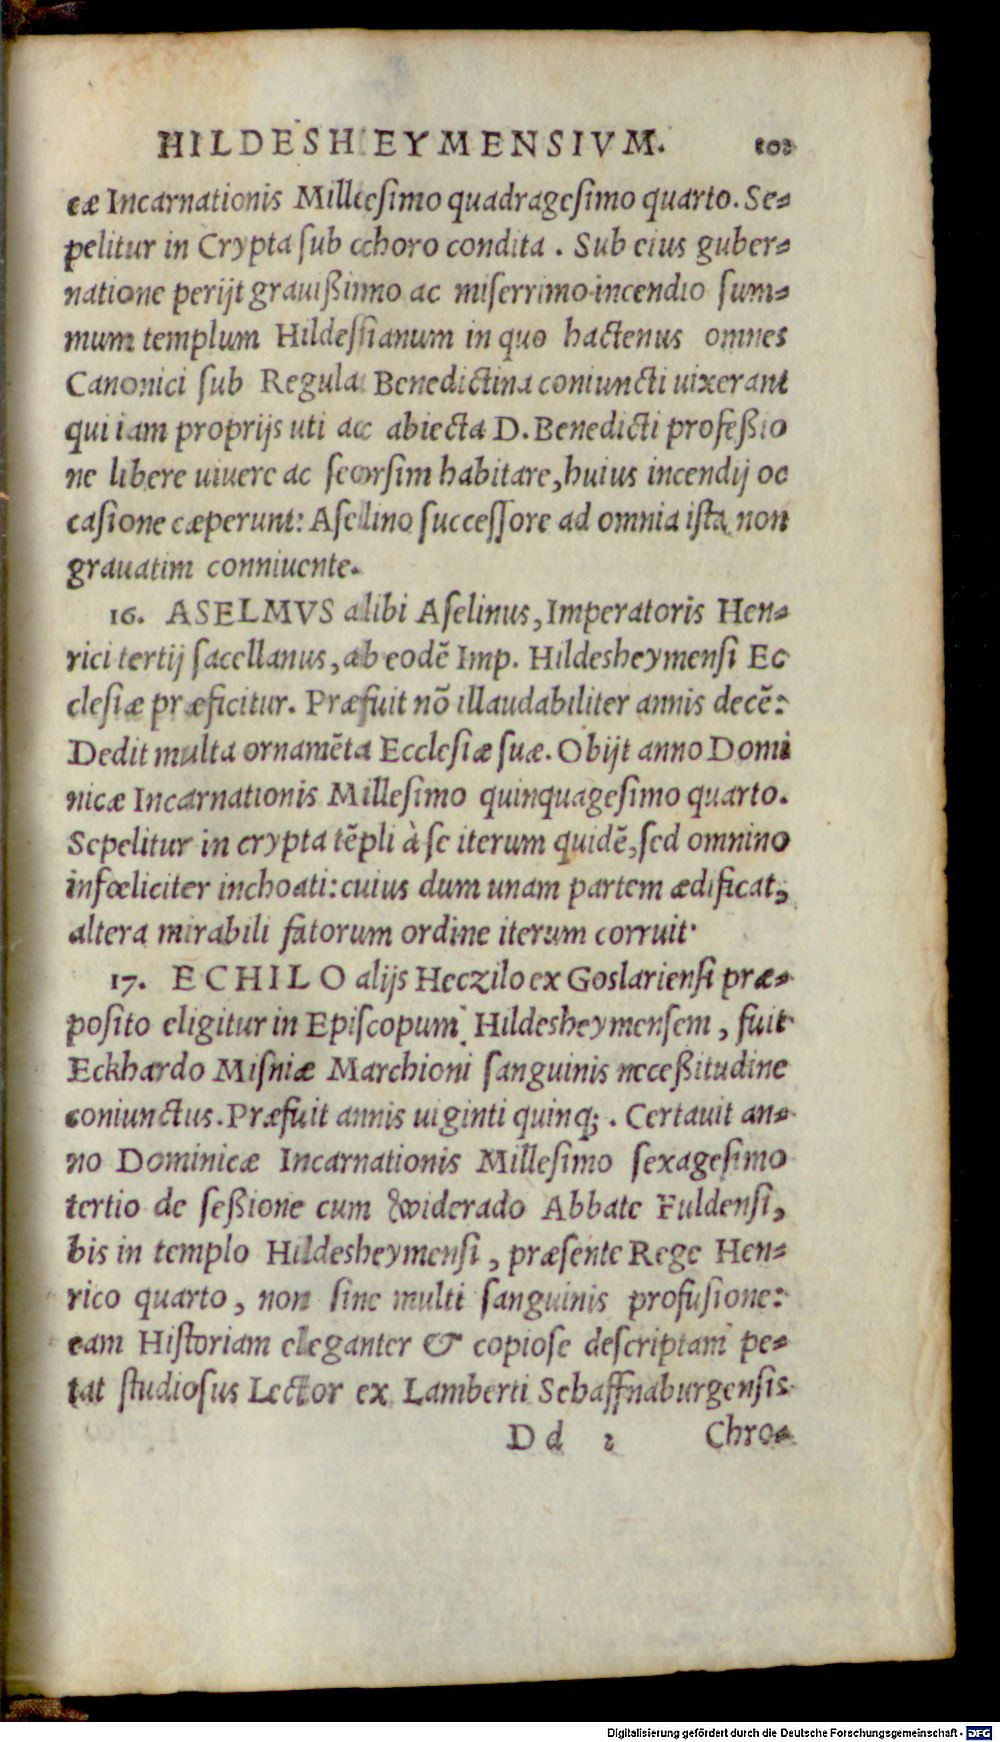 HILDESHEYMENSIVM. 202
cæ Incarnationis Millesimo quadragesimo quarto. Se-
pelitur in Crypta sub choro condita. Sub eius guber-
natione perijt grauißimo ac miserrimo incendio sum-
mum templum Hildessianum in quo hactenus omnes
Canonici sub Regula Benedictina coniuncti uixerant
qui iam proprijs uti ac abiecta D. Benedicti profeßio
ne libere uiuere ac seorsim habitare, huius incendij oc
casione cæperunt: Asellino successore ad omnia ista non
grauatim conniuente.
16. ASELMVS alibi Aselinus, Imperatoris Hen-
rici tertij sacellanus, ab eodē Imp. Hildesheymensi Ec
clesiæ præficitur. Præfuit nō illaudabiliter annis decē:
Dedit multa ornamēta Ecclesiæ suæ. Obijt anno Domi
nicæ Incarnationis Millesimo quinquagesimo quarto.
Sepelitur in crypta tēpli à se iterum quidē, sed omnino
infœliciter inchoati: cuius dum unam partem ædificat,
altera mirabili fatorum ordine iterum corruit.
17. ECHILO alijs Heczilo ex Goslariensi præ-
posito eligitur in Episcopum Hildesheymensem, fuit
Eckhardo Misniæ Marchioni sanguinis neceßitudine
coniunctus. Præfuit annis uiginti quinq;. Certauit an-
no Dominicæ Incarnationis Millesimo sexagesimo
tertio de seßione cum Widerado Abbate Fuldensi,
bis in templo Hildesheymensi, præsente Rege Hen-
rico quarto, non sine multi sanguinis profusione:
eam Historiam eleganter & copiose descriptam pe-
tat studiosus Lector ex Lamberti Schaffnaburgensis
Dd 2 Chro-
Digitalisierung gefördert durch die Deutsche Forschungsgemeinschaft - DFG